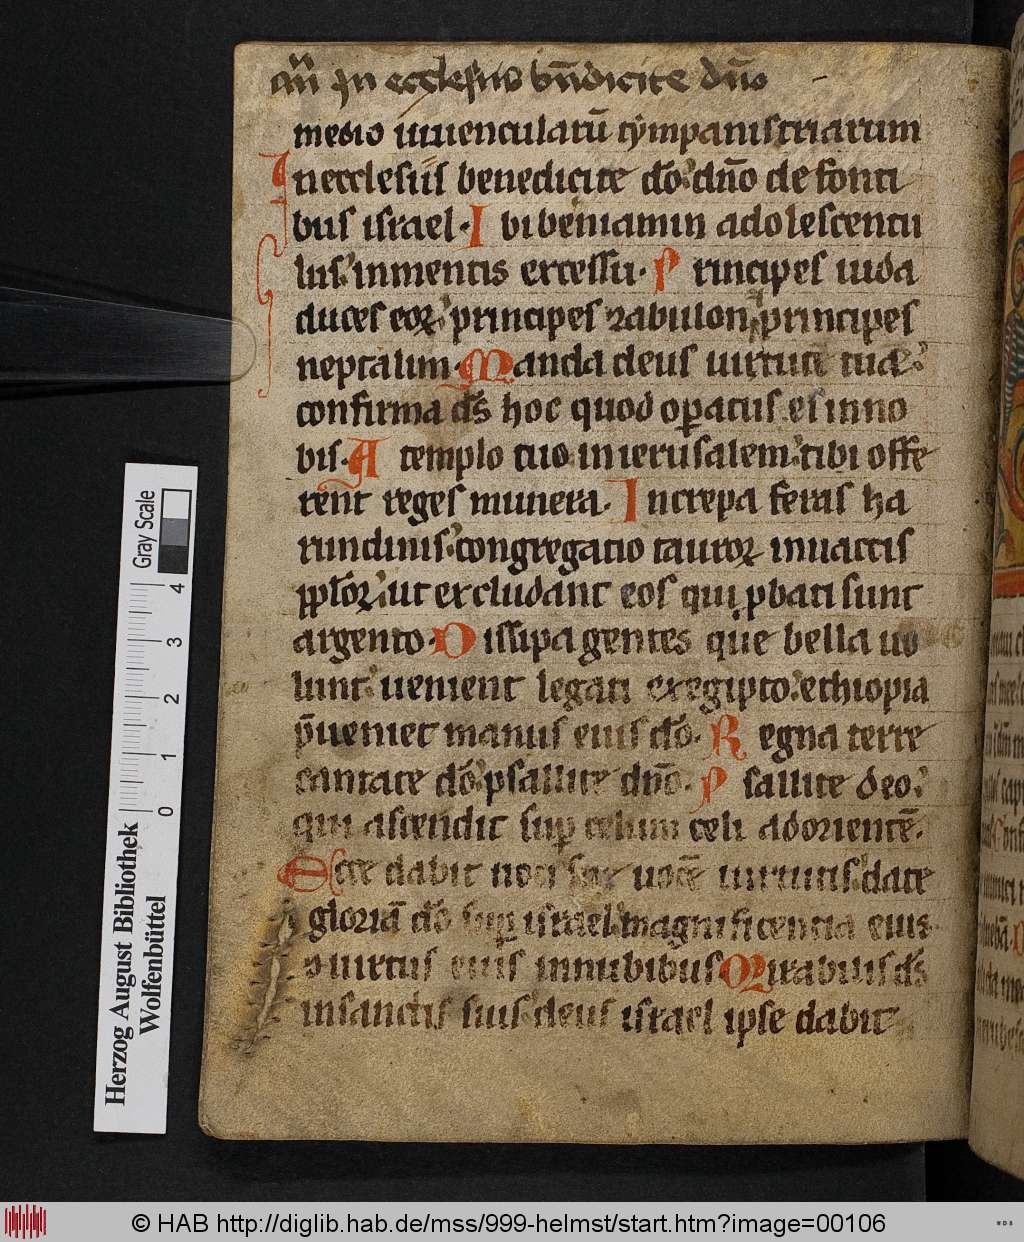 an̄ In ecclesiis bn̄dicite dn̄o
medio iuuencularū tympanistriarum
In ecclesiis benedicite dō dn̄o de fonti
bus israel. Ibi beniamin adolescentu
lus inmentis excessu. Principes iuda
duces eoꝝ principes zabulon principes
neptalim. Manda deus uirtute tuae
confirma ds̄ hoc quod oꝑatus es inno
bis. A templo tuo in ierusalem tibi offe
rent reges munera. Increpa feras ha
rundinis congregatio tauroꝝ inuaccis
pploꝝ ut excludant eos qui ꝓbati sunt
argento. Dissipa gentes que bella uo
lunt uenient legati exegipto ethiopia
p̄ueniet manus eius dō. Regna terre
cantate dō psallite dn̄o. Psallite deo
qui ascendit suꝑ celum celi adorientē.
Ecce dabit uoci sue uocē uirtutis date
gloriā dō suꝑ israel magnificentia eius
& uirtus eius innubibus. Mirabilis ds̄
insanctis suis deus israel ipse dabit
Gray Scale
4
3
2
1
0
Herzog August Bibliothek
Wolfenbüttel
© HAB http://diglib.hab.de/mss/999-helmst/start.htm?image=00106